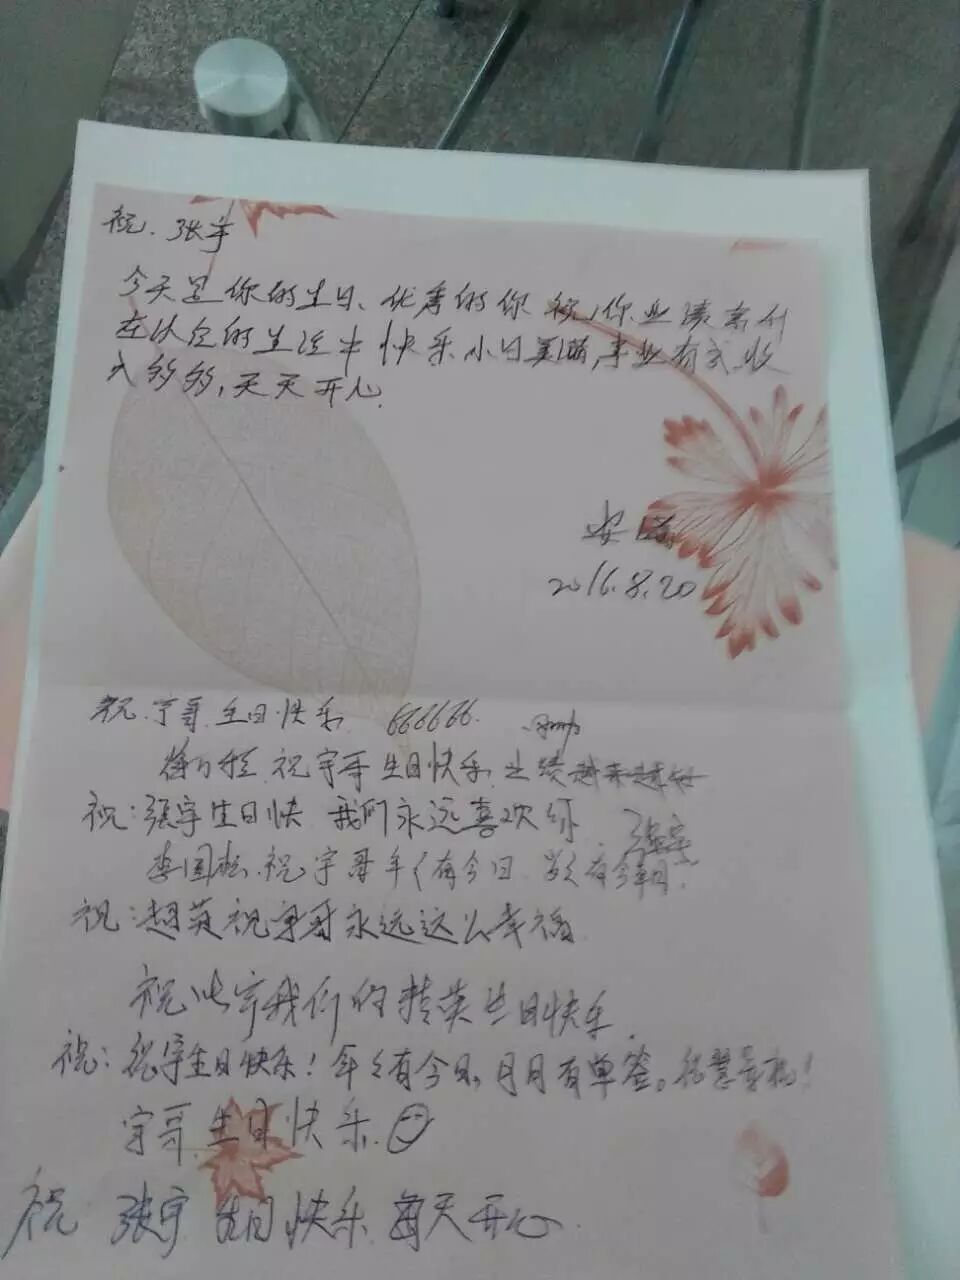 祝.张宇
今天是你的生日、优秀的你祝你业绩高升
在以后的生活中快乐小日美满,事业有成,收
入多多,天天开心.
安
2016.8.20
祝.宇哥.生日.快乐 666666.
祝宇哥生日快乐 业绩越来越好
祝:张宇生日快 我们永远喜欢你 张宇
李国松.祝宇哥年年有今日 岁岁有今朝.
祝:赵英祝宇哥永远这么幸福
祝张宇我们的精英生日快乐.
祝:张宇生日快乐!年年有今日,月月有单签。张慧
宇哥.生日快乐.
祝 张宇 生日快乐 每天开心.